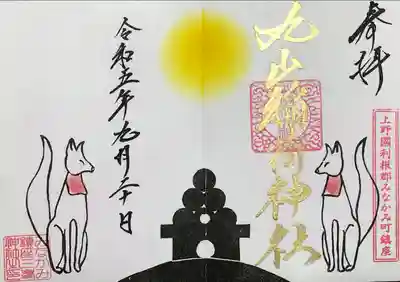 奉拝
上野國利根郡みなかみ町鎮座
丸山稲荷神社
令和五年九月二十日